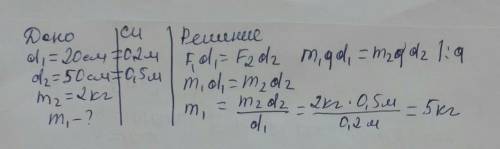 Дано
СИ
d₁=20см=0,2м
d₂=50см=0,5м
m₂=2кг
m₁-?
Решение
F₁d₁=F₂d₂ m₁gd₁=m₂gd₂ |:g
m₁d₁=m₂d₂
m₁=m₂d₂/d₁=2кг·0,5м/0,2м=5кг